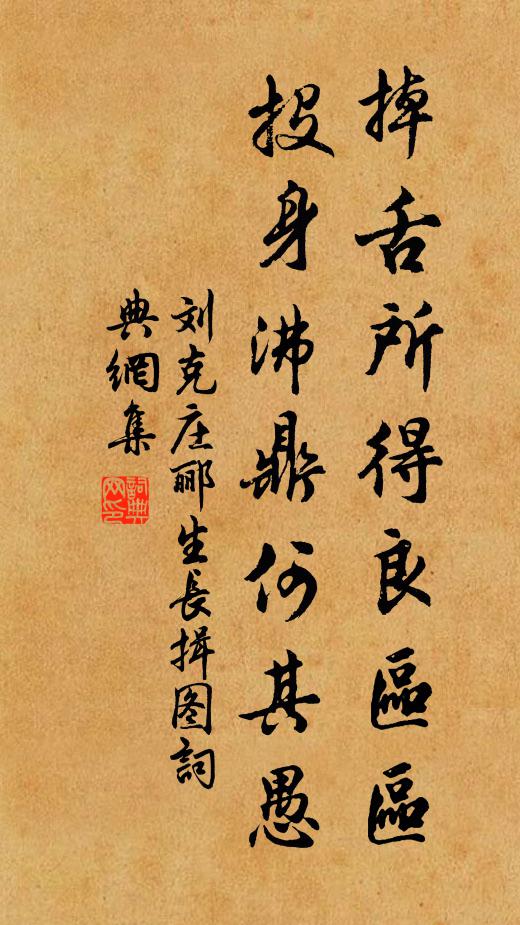 掉舌所得良區區
投身沸鼎何其愚
刘克庄郦生長揖图詞
典網集
詞典网印